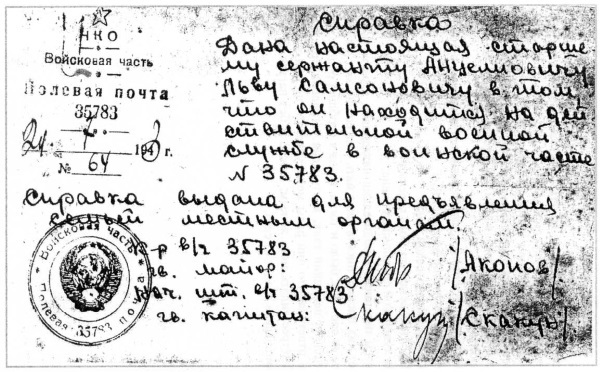 НКО
Войсковая часть
Полевая почта
35783
194 г.
№ 64
Справка
Дана настоящая старше-
му сержанту Анцелиовичу
Льву Самсоновичу в том,
что он находится на дей
ствительной военной
службе в воинской части
N 35783.
Справка выдана для предъявления
семьей местным органам.
К-р в/ч 35783
гв. майор:
/Яконов/
Нач. шт. в/ч 35783
гв. капитан:
Войсковая часть
Полевая 35783 почта